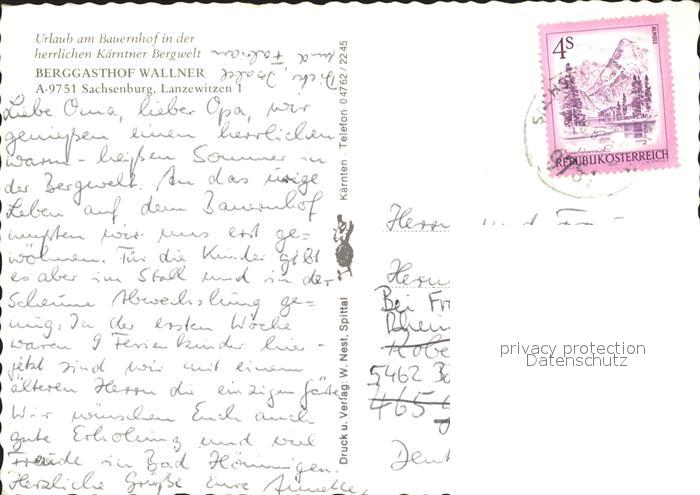 Urlaub am Bauernhof in der
herrlichen Kärntner Bergwelt
BERGGASTHOF WALLNER
A-9751 Sachsenburg, Lanzewitzen 1
Liebe Oma, lieber Opa, wir
genießen einen herrlichen
warm-heißen Sommer in
der Bergwelt. An das urige
Leben auf dem Bauernhof
mußten wir uns erst ge=
wöhnen. Für die Kinder gibt
es aber im Stall und in der
Scheune Abwechslung ge=
nug. In der ersten Woche
waren 9 Ferienkinder hier -
jetzt sind wir mit einem
älteren Herrn die einzigen Gäste
Wir wünschen Euch auch
gute Erholung und viel
Freude in Bad Hönningen.
Herzliche Grüße Eure Annette,
und Fabian
Druck u. Verlag: W. Nest, Spittal
Kärnten - Telefon 0 47 62 / 22 45
4S
ALMSEE
REPUBLIK ÖSTERREICH
Herrn und Frau
Herm
Bei Fr
Rhein
Robe
5462 B
465
Deut
privacy protection
Datenschutz